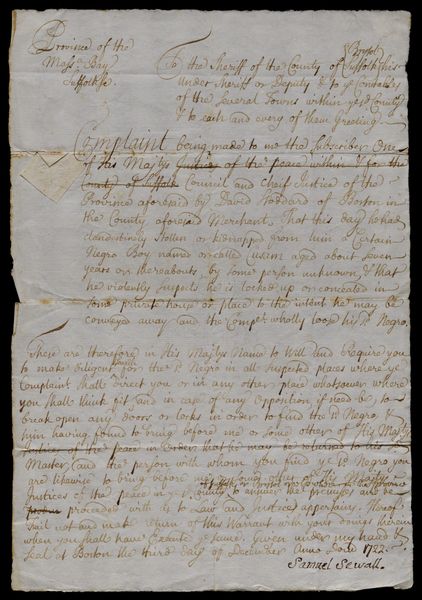 Province of the
Mass.ª Bay
Suffolk ss.
To the Sheriff of the County of Suffolk his
Under Sheriff or Deputy & to ye Constables
of the Several Towns within ye County
& to each and every of them Greeting
Complaint being made to me the Subscriber One
of his Majtys Justices of the peace within & for the
County of Suffolk Council and Cheif Justice of the
Province aforesaid by David Stoddard of Boston in
the County aforesaid Merchant, That this day he had
clandestinly Stollen or kidnapped from him a Certain
Negro Boy named or called aged about Seven
years or thereabouts, by some person unknown, & that
he violently Suspects he is locked up or concealed in
Some private house or place to the intent he may be
conveyed away and the Compt wholly loose his sd. Negro.
These are therefore in His Majtys Name to Will and Require you
to make diligent Search for the sd. Negro in all Suspected places where ye
Complainant Shall direct you or in any other place whatsoever where
you Shall think fit and in case of any Opposition if need be to
break open any doors or locks in order to find the sd. Negro &
him having found to bring before me or some other of His Majtys
Justices of the peace in Order that he may be returned to his
Master, and the person with whom you find ye sd. Negro you
are likewise to bring before me or some other of His Majtys
Justices of the peace in ye County to answer the premises and be
proceeded with as to Law and Justice appertains. Hereof
fail not and make return of this Warrant with your doings therein
when you shall have Executed ye same. Given under my hand &
Seal at Boston the third day of December Anno Dom 1722.
Samuel Sewall.